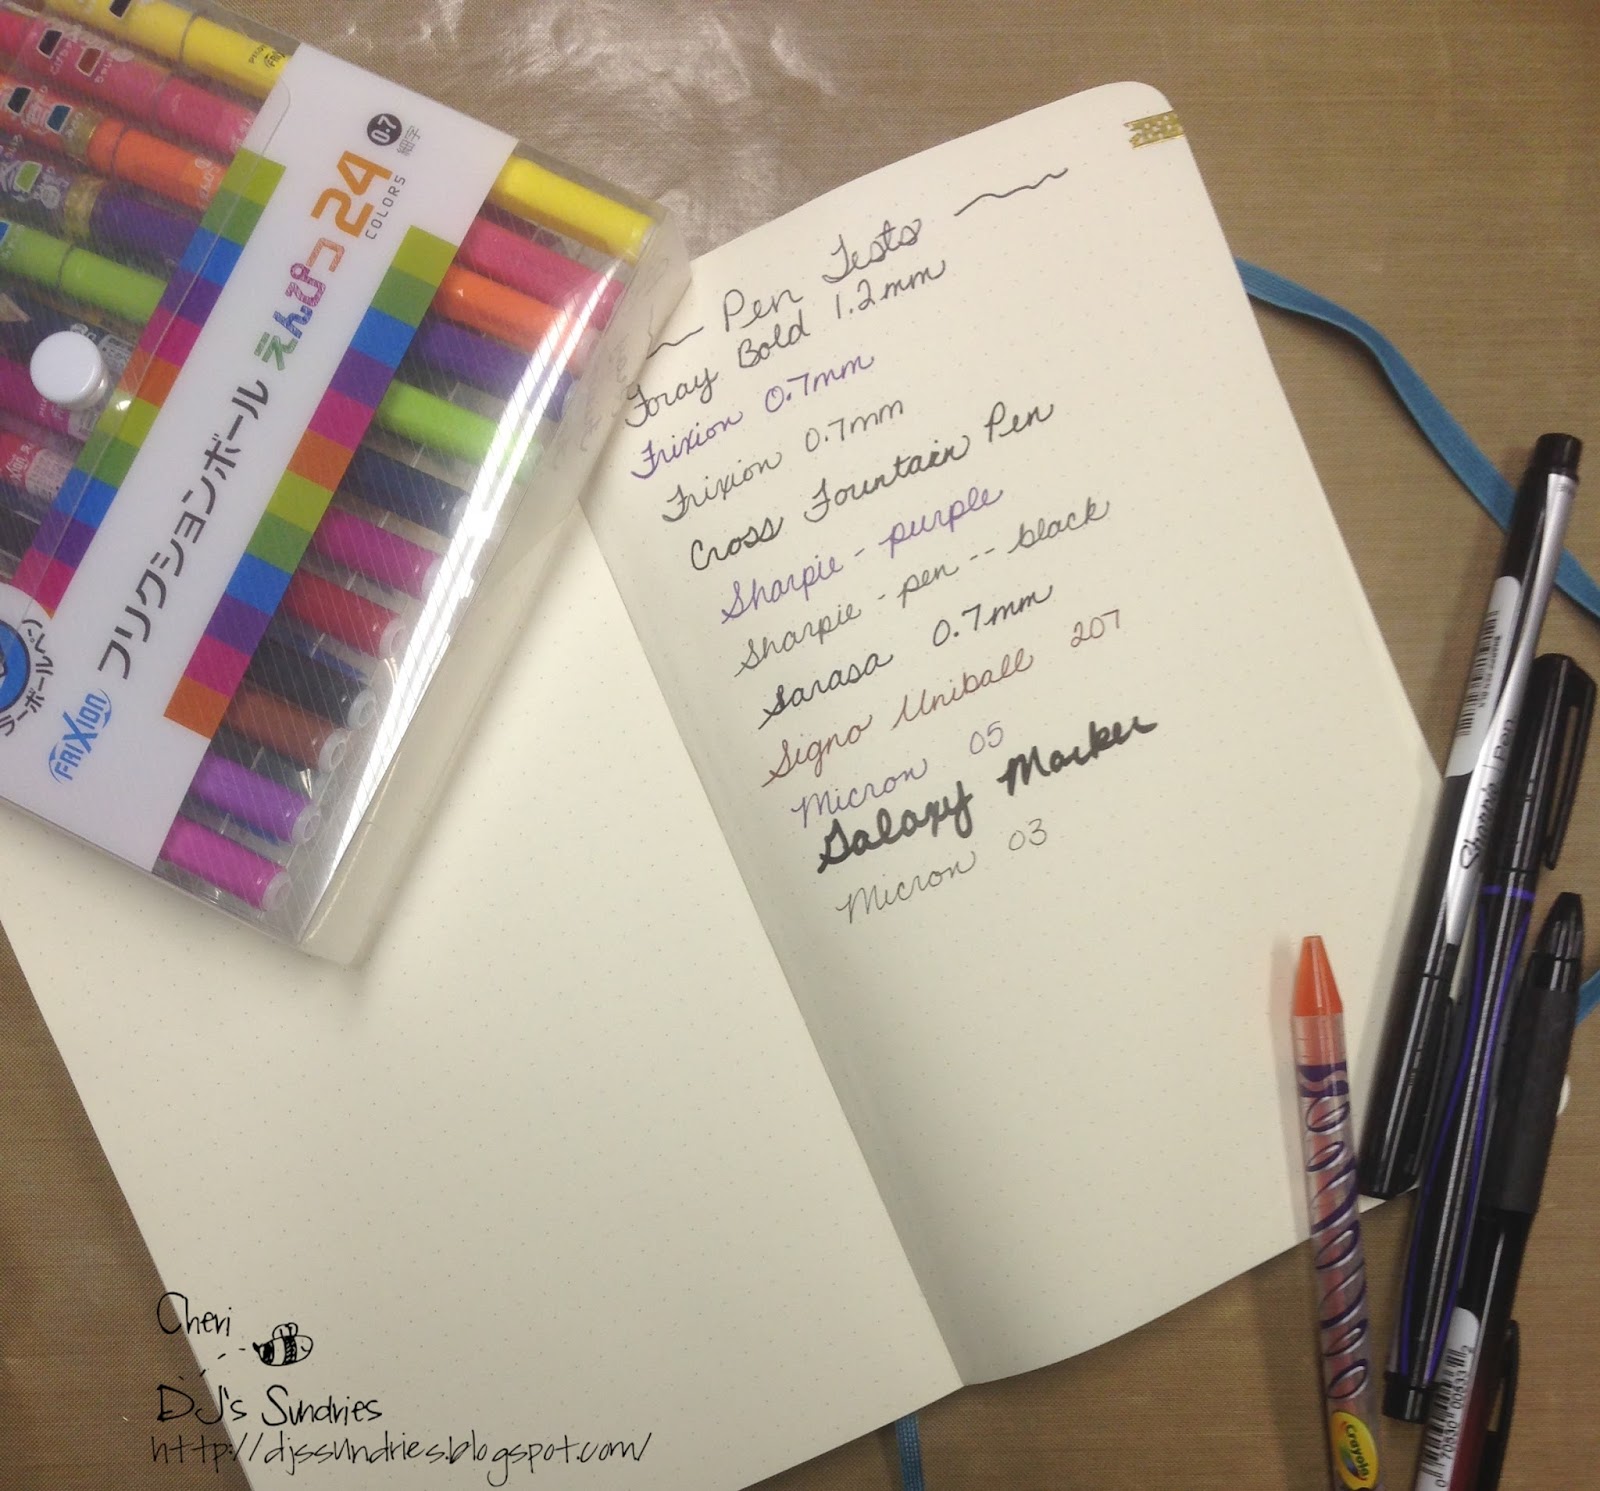 0.7
細字
24
COLORS
フリクションボール えんぴつ
FRIXION
ラーボールペン)
~ Pen Tests ~
Foray Bold 1.2mm
Frixion 0.7mm
Frixion 0.7mm
Cross Fountain Pen
Sharpie - purple
Sharpie - pen -- black
Sarasa 0.7mm
Signo Uniball 207
Micron 05
Galaxy Marker
Micron 03
Sharpie Pen
Crayola
Cheri
DJ's Sundries
http://djssundries.blogspot.com/